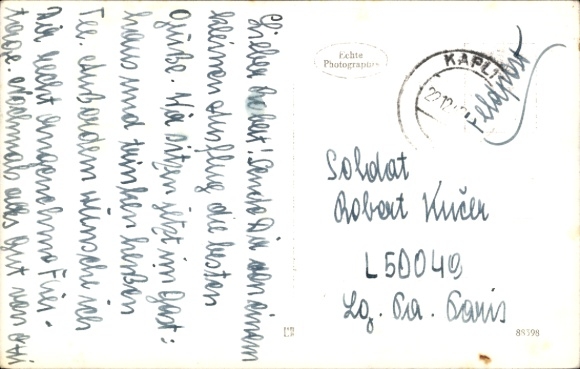 Lieber Robert! Sende Dir von einem
kleinen Ausflug die besten
Grüße. Wir sitzen jetzt im Gast-
haus und trinken heißen
Tee. Außerdem wünsche ich
Dir recht angenehme Feier-
tage. Nochmals alles gut von
Echte
Photographie
KAPLI
22.12.
Feldpost
Soldat
Robert Kučer
L50049
Lg. Pa. Paris
88398